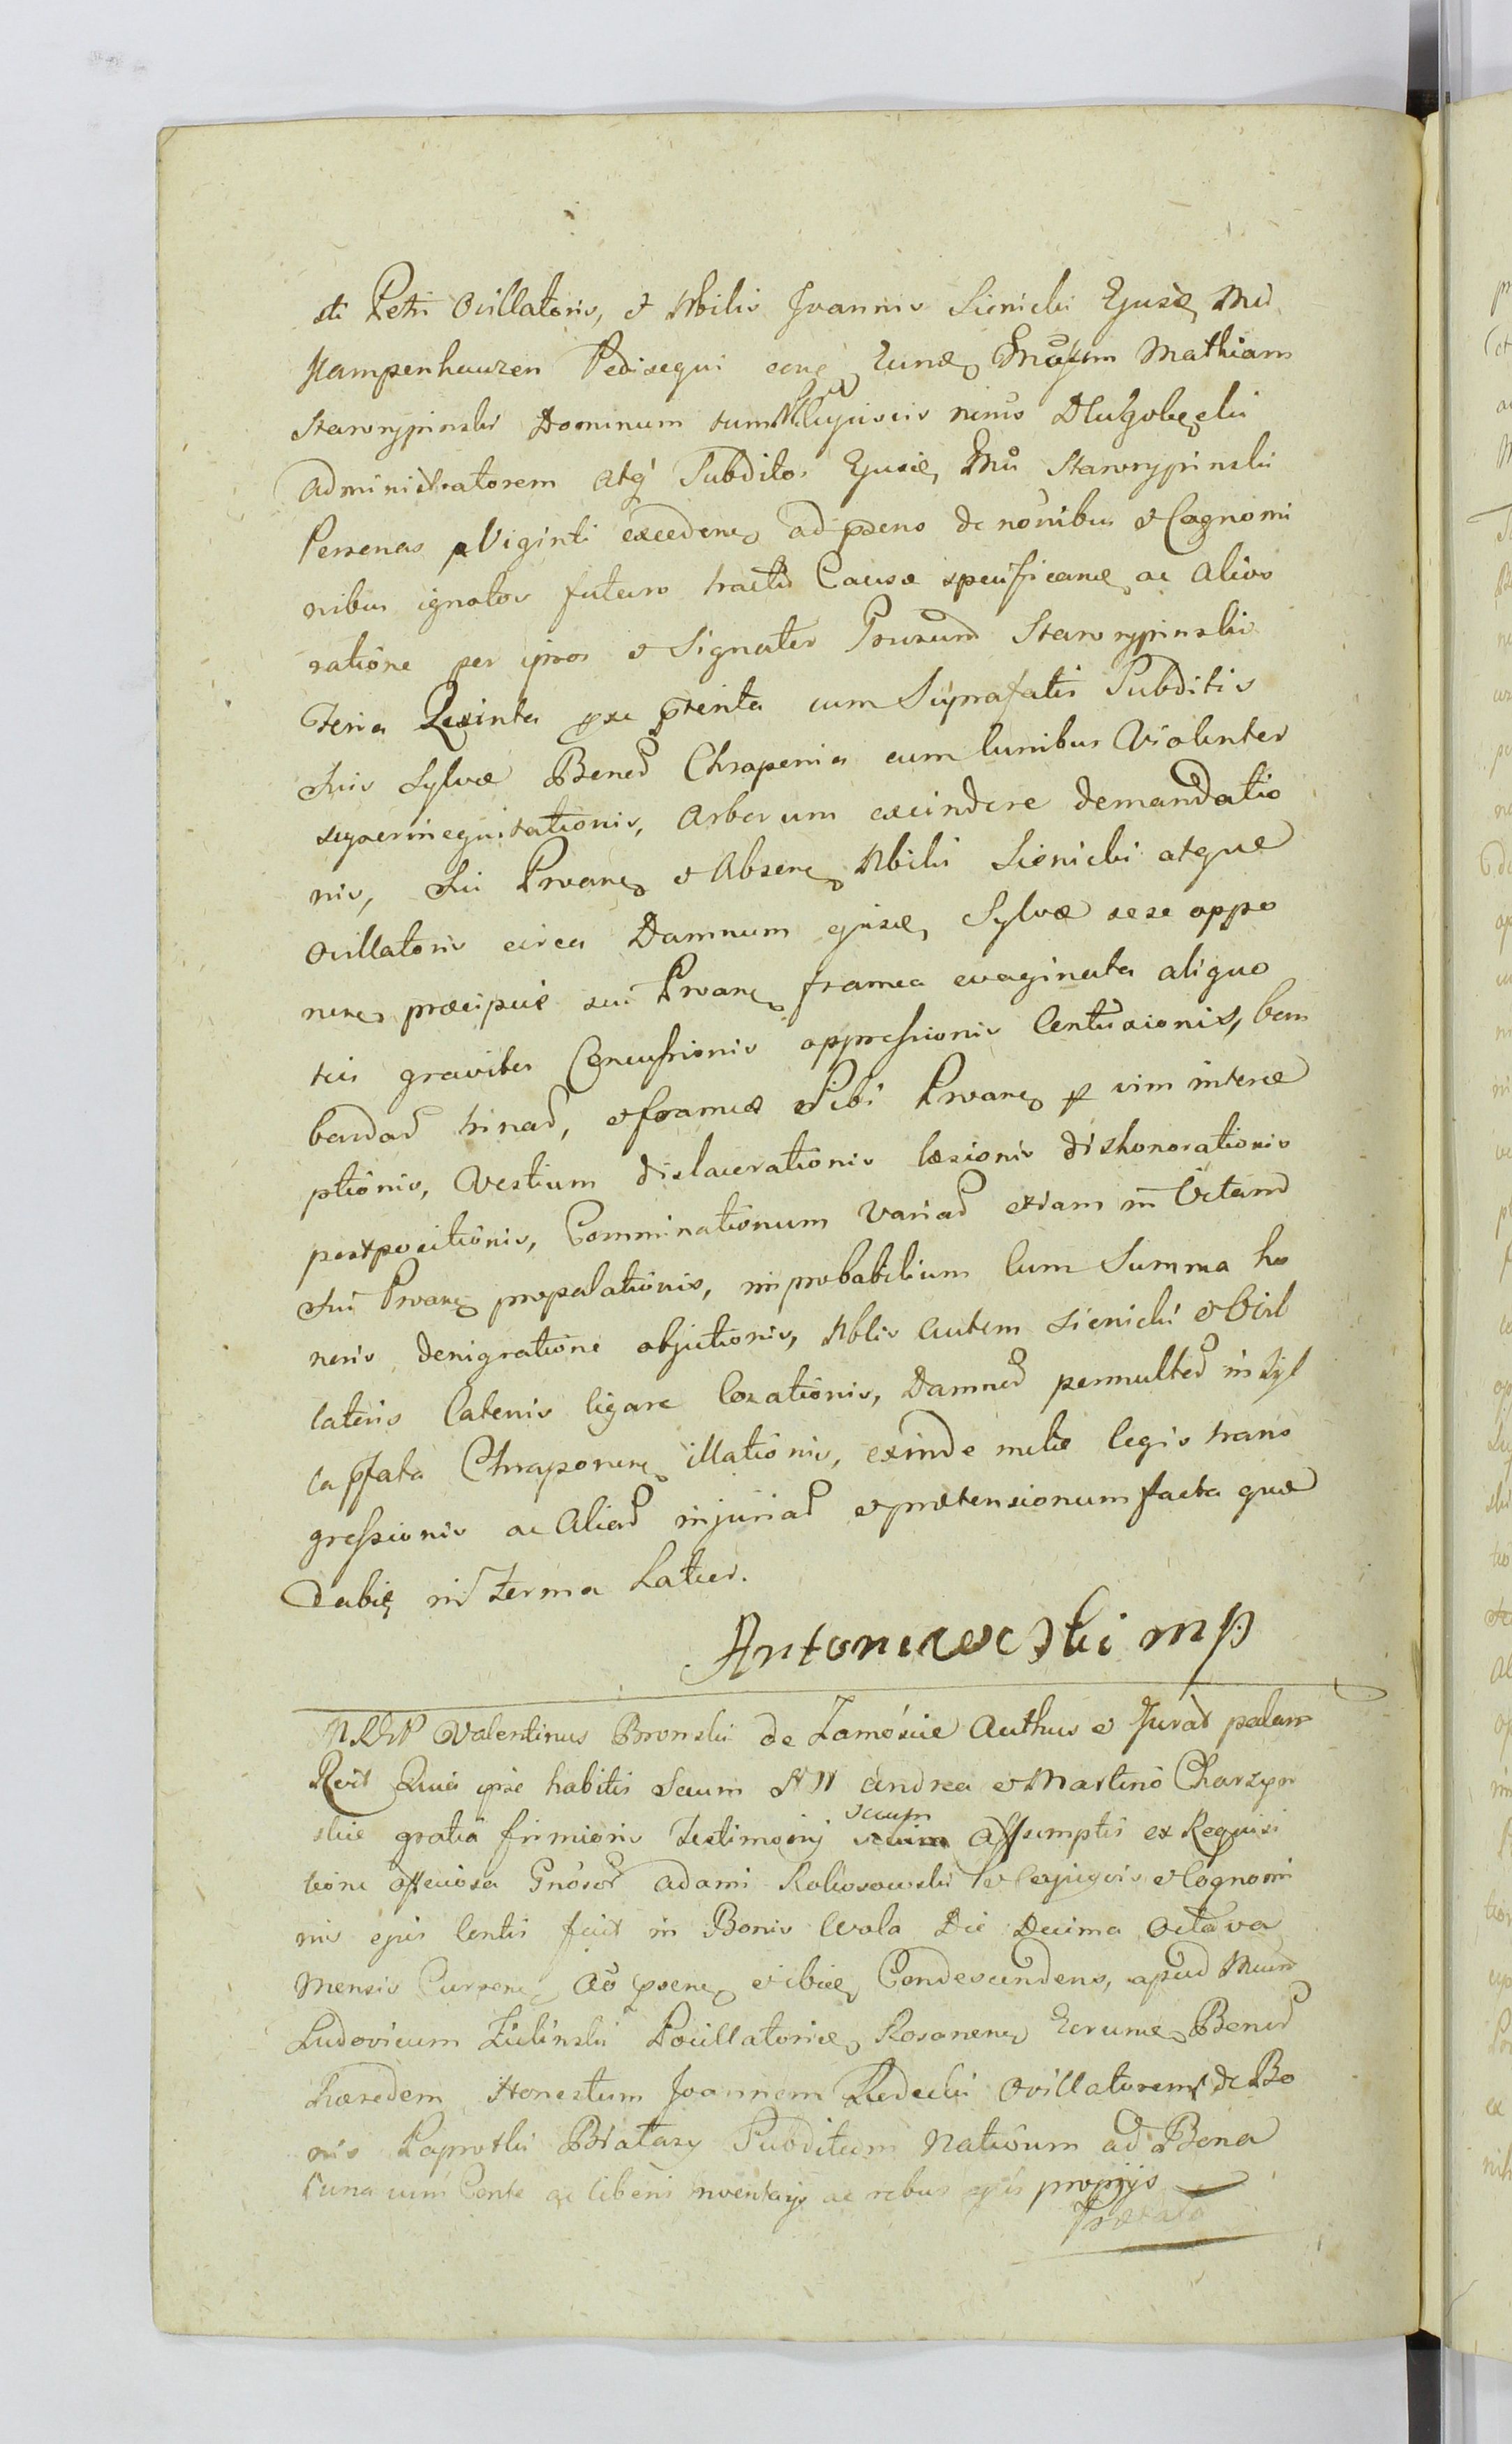 sti Petri Ovillatoris, et Nbilis Joannis Sienicki Ejusd Md
Kampenhauzen Pedisequi conq Eund Mgfum Mathiam
Starorypinski Dominum tum Nbil Ejuscis nimo Dlugolęcki
administratorem atq Subditos Ejusd Md Starorypinski
Personas p Viginti exceden ad psens de noibus et Cognomi
nibus ignotos futuro tractu Causæ specificand ac alios
ratione per ipsos et Signater Prusum Starorypinski
Feria Quinta pxe pterita cum Suprafatis Subditis
suis Sylvæ Bonor Chraponia cum lunibus Violenter
superinequitationis, Arborum excindere demandatio
nis, sui Proan et Absen Nbilis Sienicki atque
Ovillatoris circa Damnum ejusd Sylvæ sese oppo
nen præcipue sui Proan framea evaginata aliquo
ties graviter Concussionis oppressionis Contusionis, bom
bardar trinar, et frameæ Sibi Proan p vim interce
ptionis, Vestium dislacerationis læsionis dishonorationis
postpositionis, Comminationum variar etiam in Vitam
sui Proan propalationis, improbabilium Cum Summa ho
noris denigratione objectionis, Nblis autem Sienicki et Ovil
latoris Catenis ligare locationis, Damnor permultor in Syl
va pfata Chraponen illationis, exinde mltæ legis trans
gressionis ac aliar injuriar et prætensionum facta quæ
dabit in Termo Latior.
Antoniewski mp
Valentinus Bronski de Zamoscie Authus et Jurat palam
Rcit Quia ipse habitis secum NN Andrea et Martino Charzyn
skie gratia firmioris Testimonij secum Assumptis ex Requisi
tione officiosa Gnosor Adami Rokosowski et Conjugis et Cognomi
nis ejus Contis fuit in Bonis Wola Die Decima Octava
Mensis Curren Ao psen et ibid Condescendens, apud Mcum
Ludovicum Zielinski Pocillatorid Rosanen Eorumd Bonor
Hæredem Honestum Joannem Rudecki Ovillatorem de Bo
nis Paprotki Bratasy Subditum Nativum ad Bona
una cum Conte ac liberis inventarys ac rebus ejus proprys
Præfata